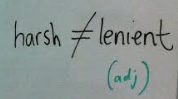 harsh ≠ lenient
(adj)